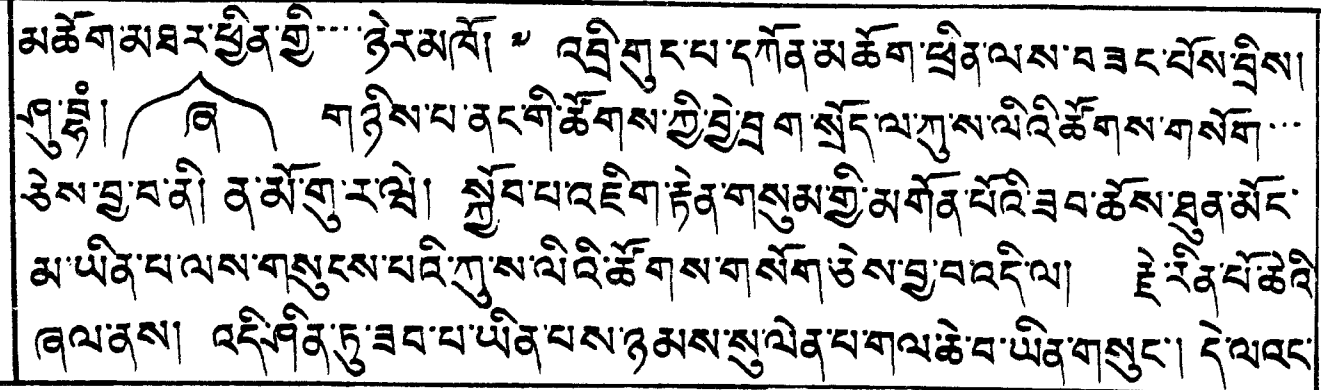 མཆོག་མཐར་ཕྱིན་གྱི་་་་ཉེར་མཁོ། ༎ འབྲི་གུང་པ་དཀོན་མཆོག་ཕྲིན་ལས་བཟང་པོས་བྲིས།
ཤུ་བྷཾ། ཞ གཉིས་པ་ནང་གི་ཚོགས་ཀྱི་བྱེ་བྲག་སྲོད་ལ་ཀུ་ས་ལིའི་ཚོགས་གསོག་་་
ཅེས་བྱ་བ་ནི། ན་མོ་གུ་ར་ཝེ། སྐྱོབ་པ་འཇིག་རྟེན་གསུམ་གྱི་མགོན་པོའི་ཟབ་ཆོས་ཐུན་མོང་
མ་ཡིན་པ་ལས་གསུངས་པའི་ཀུ་ས་ལིའི་ཚོགས་གསོག་ཅེས་བྱ་བ་འདི་ལ། རྗེ་རིན་པོ་ཆེའི
ཞལ་ནས། འདི་ཤིན་ཏུ་ཟབ་པ་ཡིན་པས་ཉམས་སུ་ལེན་པ་གལ་ཆེ་བ་ཡིན་གསུང་། དེ་ལའང་